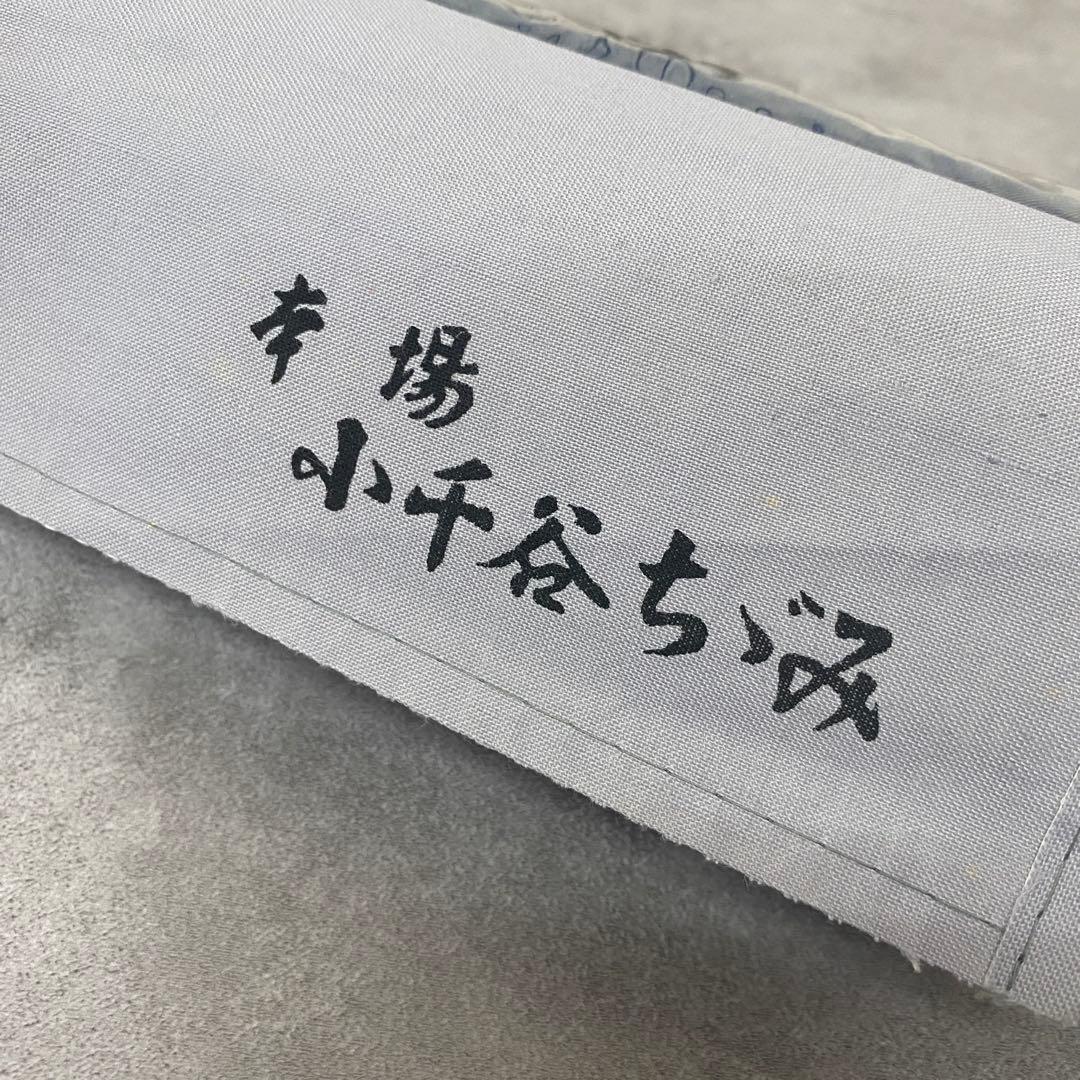 本場
小千谷ちゞみ